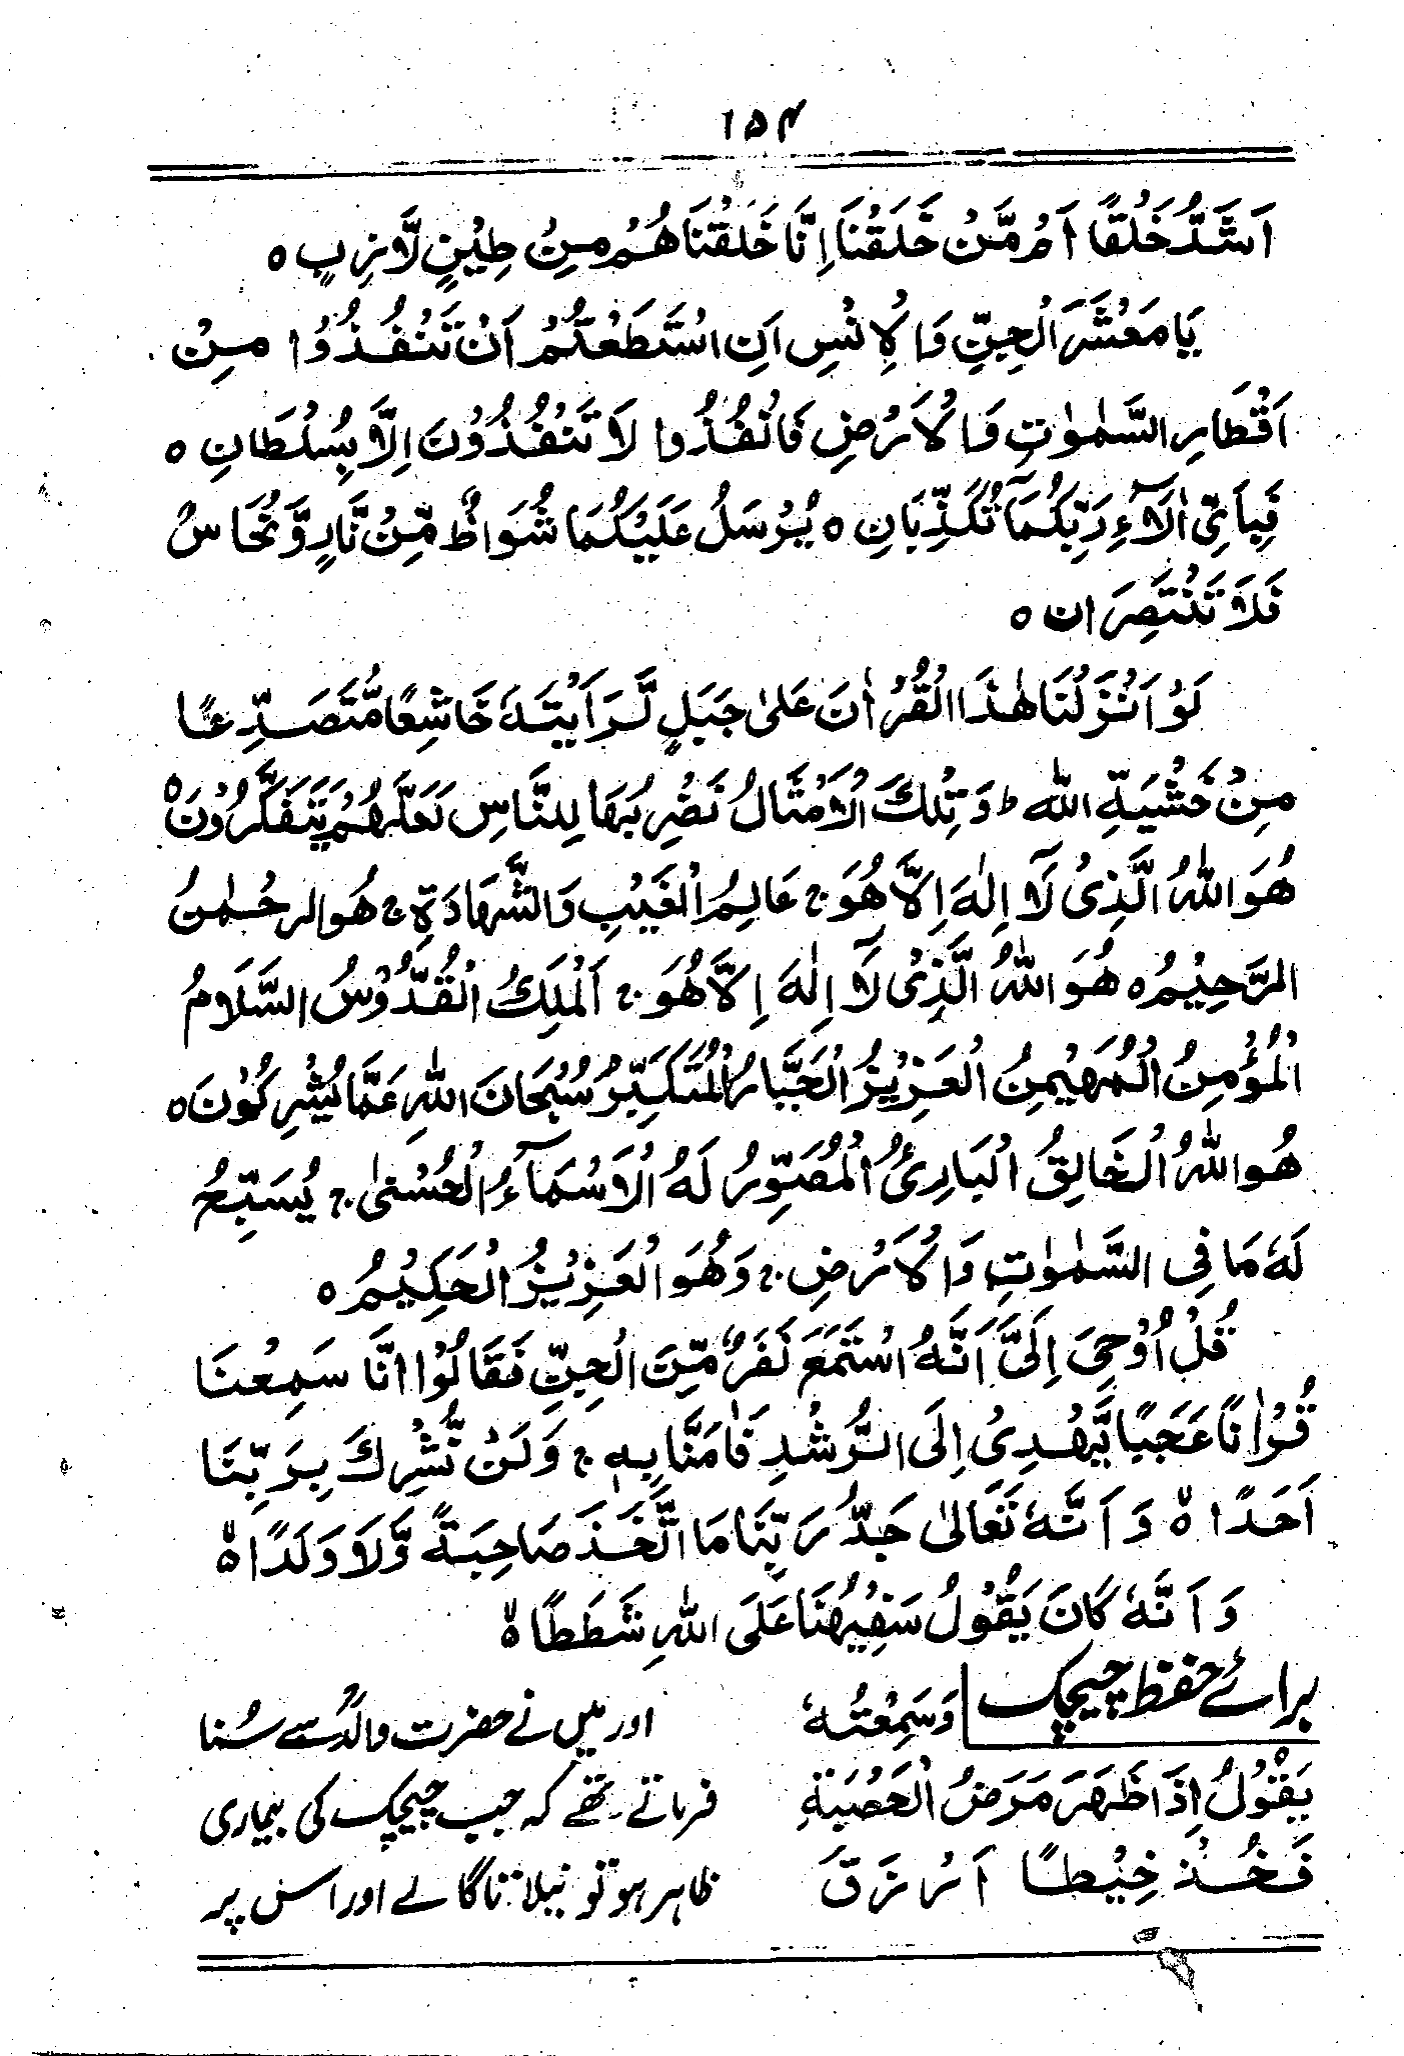 ۱۵۴
اَشَدُّ خَلْقًا اَمْ مَّنْ خَلَقْنَا اِنَّا خَلَقْنَاهُمْ مِنْ طِيْنٍ لَّازِبٍ ٥
يَا مَعْشَرَ الْجِنِّ وَالْاِنْسِ اَنِ اسْتَطَعْتُمْ اَنْ تَنْفُذُوْا مِنْ
اَقْطَارِ السَّمٰوٰتِ وَالْاَرْضِ فَانْفُذُوا لَا تَنْفُذُوْنَ اِلَّا بِسُلْطَانٍ ٥
فَبِاَيِّ اٰلَآءِ رَبِّكُمَا تُكَذِّبَانِ ٥ يُرْسَلُ عَلَيْكُمَا شُوَاظٌ مِّنْ نَّارٍ وَّنُحَاسٌ
فَلَا تَنْتَصِرَان ٥
لَوْ اَنْزَلْنَا هٰذَا الْقُرْاٰنَ عَلىٰ جَبَلٍ لَّرَاَيْتَهٗ خَاشِعًا مُّتَصَدِّعًا
مِنْ خَشْيَةِ اللّٰه ط وَتِلْكَ الْاَمْثَالُ نَضْرِبُهَا لِلنَّاسِ لَعَلَّهُمْ يَتَفَكَّرُوْنَ ٥
هُوَ اللّٰهُ الَّذِىْ لَآ اِلٰهَ اِلَّا هُوَ ج عَالِمُ الْغَيْبِ وَالشَّهَادَةِ ج هُوَ الرحْمٰنُ
الرَّحِيْمُ ٥ هُوَ اللّٰهُ الَّذِىْ لَآ اِلٰهَ اِلَّا هُوَ ج اَلْمَلِكُ الْقُدُّوْسُ السَّلَامُ
الْمُؤْمِنُ الْمُهَيْمِنُ الْعَزِيْزُ الْجَبَّارُ الْمُتَكَبِّرُ سُبْحَانَ اللّٰهِ عَمَّا يُشْرِكُوْنَ ٥
هُوَ اللّٰهُ الْخَالِقُ الْبَارِئُ الْمُصَوِّرُ لَهُ الْاَسْمَآءُ الْحُسْنىٰ ج يُسَبِّحُ
لَهٗ مَا فِى السَّمٰوٰتِ وَالْاَرْضِ ج وَهُوَ الْعَزِيْزُ الْحَكِيْمُ ٥
قُلْ اُوْحِىَ اِلَىَّ اَنَّهُ اسْتَمَعَ نَفَرٌ مِّنَ الْجِنِّ فَقَالُوْا انَّا سَمِعْنَا
قُرْاٰنًا عَجَبًا يَّهْدِىْ اِلَى الرُّشْدِ فَاٰمَنَّا بِهٖ ج وَلَنْ نُّشْرِكَ بِرَبِّنَا
اَحَدًا ٥ وَاَنَّهٗ تَعَالىٰ جَدُّ رَبِّنَا مَا اتَّخَذَ صَاحِبَةً وَّلَا وَلَدًا ٥
وَاَنَّهٗ كَانَ يَقُوْلُ سَفِيْهُنَا عَلَى اللّٰهِ شَطَطًا ٥
برائے حفظ چیچک
وَسَمِعْتُهٗ اور میں نے حضرت والدؒ سے سُنا
يَقُوْلُ اِذَا ظَهَرَ مَرَضُ الْحَصْبَةِ فرماتے تھے کہ جب چیچک کی بیماری
فَخُذْ خِيْطًا اَزْرَقَ ظاہر ہو تو نیلا تاگا لے اور اس پر